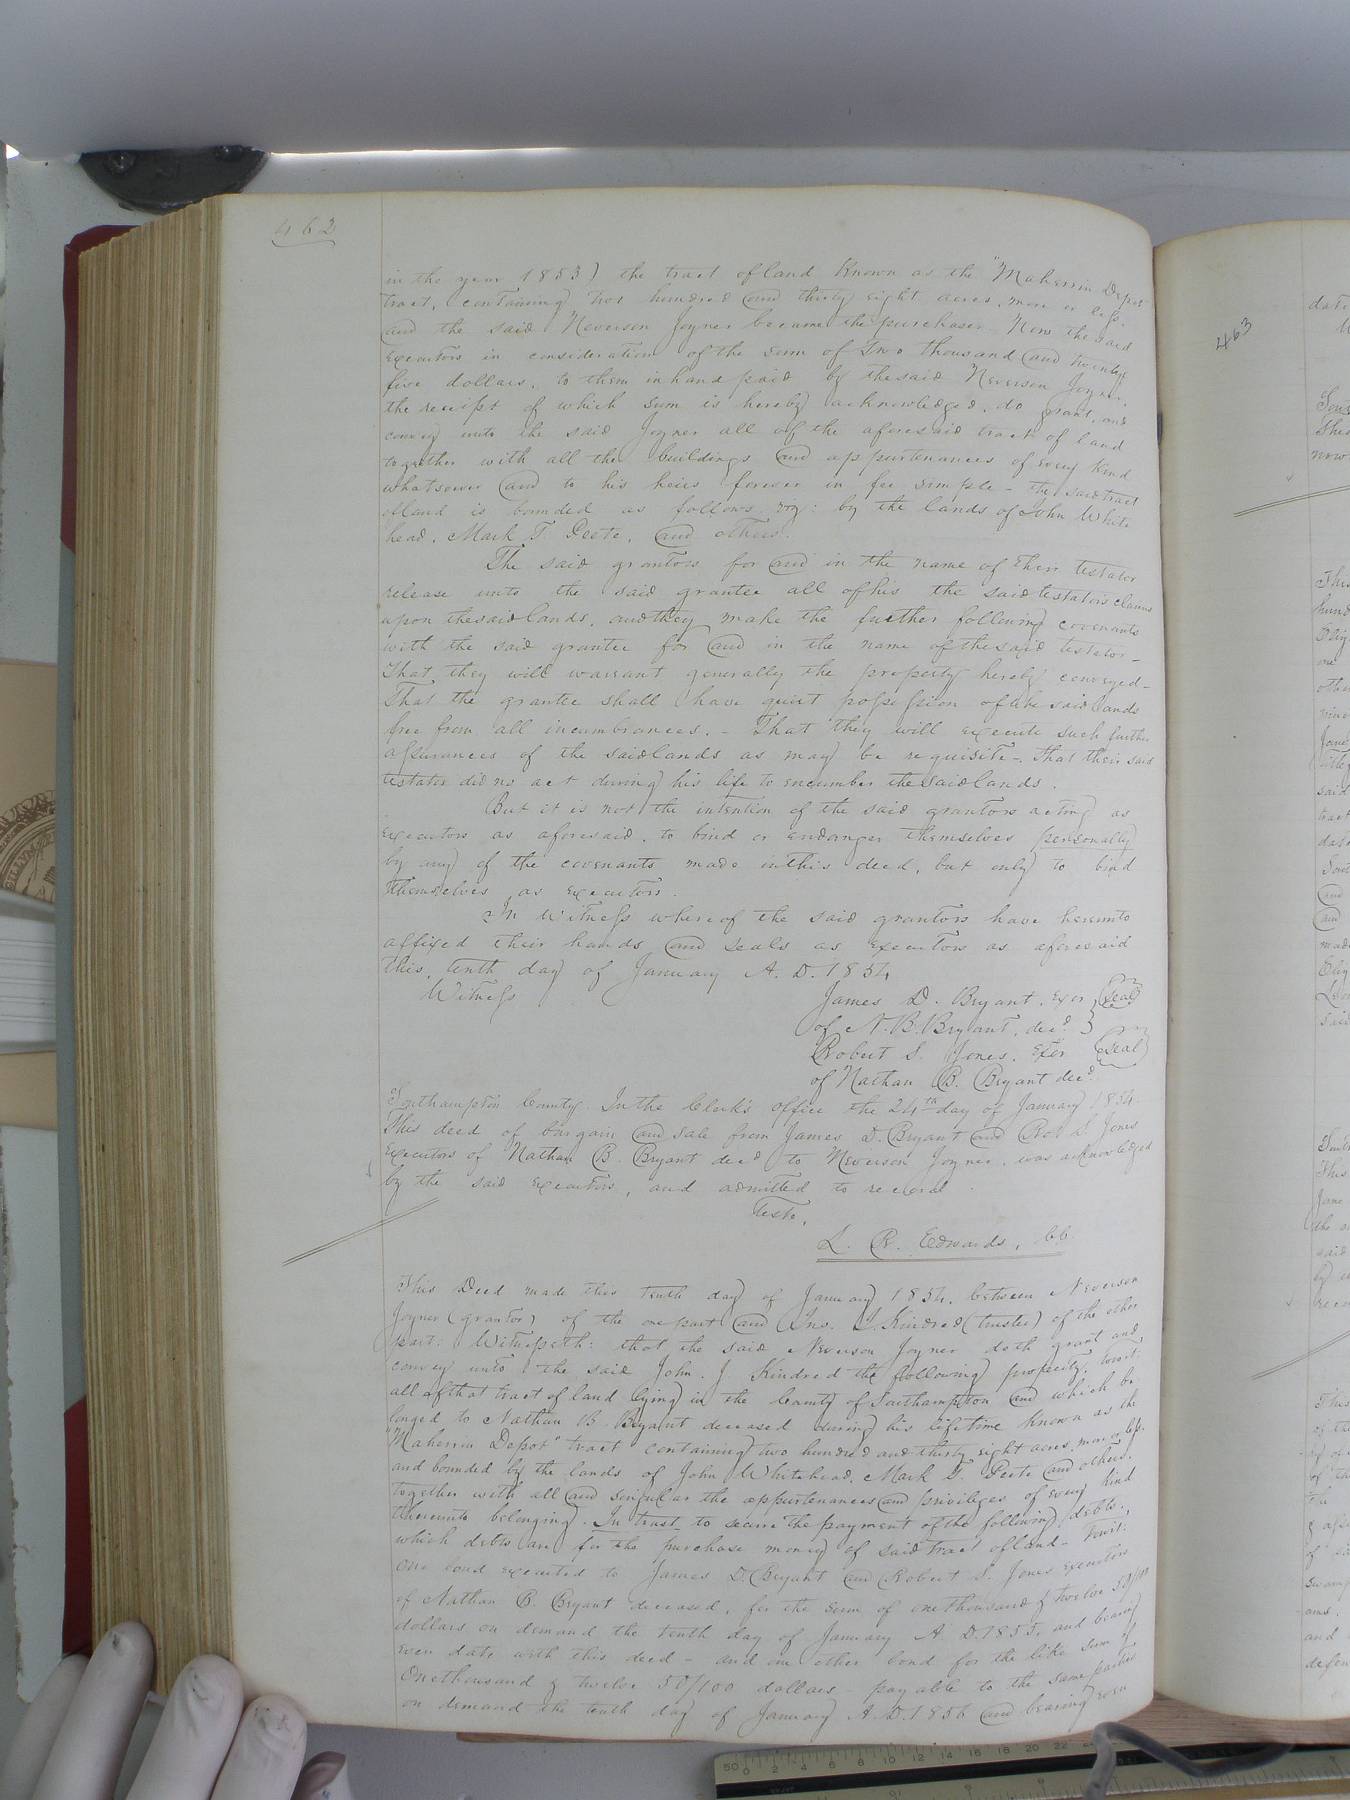 462
in the year 1853) the tract of land Known as the "Maherrin Depot"
tract, containing two hundred and thirty eight acres, more or less.
and the said Neverson Joyner became the purchaser. Now the said
Executors in consideration of the sum of Two thousand and twenty
five dollars, to them in hand paid by the said Neverson Joyner,
the receipt of which sum is hereby acknowledged, do grant, and
convey unto the said Joyner all of the aforesaid tract of land
together with all the buildings and appurtenances of every kind
whatsoever and to his heirs forever in fee simple - the said tract
of land is bounded as follows viz: by the lands of John White
head, Mark T. Peete, and others.
The said grantors for and in the name of their testator
release unto the said grantee all of his the said testator's claims
upon the said lands, and they make the further following covenants
with the said grantee for and in the name of the said testator -
That they will warrant generally the property hereby conveyed -
That the grantee shall have quiet possession of the said lands
free from all incumbrances. - That they will execute such further
assurances of the said lands as may be requisite - That their said
testator did no act during his life to encumber the said lands.
But it is not the intention of the said grantors acting as
executors as aforesaid, to bind or endanger themselves personally
by any of the covenants made in this deed, but only to bind
themselves as Executors.
In Witness whereof the said grantors have hereunto
affixed their hands and seals as executors as aforesaid
this tenth day of January A. D. 1854
Witness
James D. Bryant, Exor (Seal)
of N. B. Bryant, decd.
Robert S. Jones, Exor (Seal)
of Nathan B. Bryant decd.
Southampton County. In the Clerk's office the 24th day of January 1854.
This deed of bargain and sale from James D. Bryant and Ro. S. Jones
Executors of Nathan B. Bryant decd to Neverson Joyner, was acknowledged
by the said executors, and admitted to record.
Teste,
L. R. Edwards, CC
This Deed made this tenth day of January 1854, between Neverson
Joyner (grantor) of the one part and Jno. J. Kindred (trustee) of the other
part: Witnesseth: that the said Neverson Joyner doth grant and
convey unto the said John. J. Kindred the following property, towit:
all of that tract of land lying in the County of Southampton and which be
longed to Nathan B. Bryant deceased during his lifetime known as the
"Maherrin Depot" tract containing two hundred and thirty eight acres, more or less.
and bounded by the lands of John Whitehead, Mark T. Peete and others.
together with all and singular the appurtenances and privileges of every kind
thereunto belonging. In trust to secure the payment of the following debts,
which debts are for the purchase money of said tract of land - towit:
One bond executed to James D. Bryant and Robert S. Jones executors
of Nathan B. Bryant deceased, for the sum of one thousand & twelve 50/100
dollars on demand the tenth day of January A. D. 1855, and bearing
even date with this deed - and one other bond for the like sum of
One thousand & twelve 50/100 dollars - payable to the same parties
on demand the tenth day of January A. D. 1856 and bearing even
463